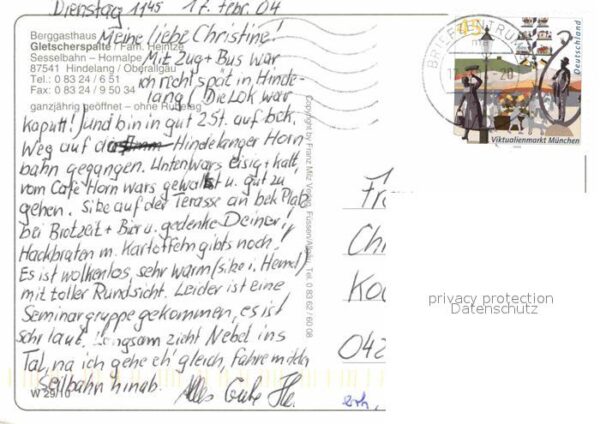 Dienstag 11⁴⁵ 17. Febr. 04
Meine liebe Christine!
Berggasthaus
Gletscherspalte / Fam. Heintze
Sesselbahn – Hornalpe
87541 Hindelang / Oberallgäu
Tel.: 0 83 24 / 6 51
Fax: 0 83 24 / 9 50 34
ganzjährig geöffnet – ohne Ruhetag
Mit Zug + Bus war
ich recht spät in Hinde-
lang! (Die Lok war
kaputt!) und bin in gut 2 St. auf bek.
Weg auf d Hindelanger Horn
bahn gegangen. Unten wars eisig + kalt,
vom Café Horn wars gewalzt u. gut zu
gehen. Sitze auf der Terasse an bek Platz
bei Brotzeit + Bier u. gedenke Deiner!
Hackbraten m. Kartoffeln gibts noch!
Es ist wolkenlos, sehr warm (sitze i. Hemd)
mit toller Rundsicht. Leider ist eine
Seminargruppe gekommen, es ist
sehr laut. Langsam zieht Nebel ins
Tal, na ich gehe eh' gleich, fahre m. d.
Seilbahn hinab. Alles Gute
W 29/10
Copyright by Franz Milz Verlag, Füssen/Allgäu, Tel. 0 83 62 / 60 08
BRIEFZENTRUM
45
Deutschland
Viktualienmarkt München
Fr
Ch
Ka
042
erh.
privacy protection
Datenschutz